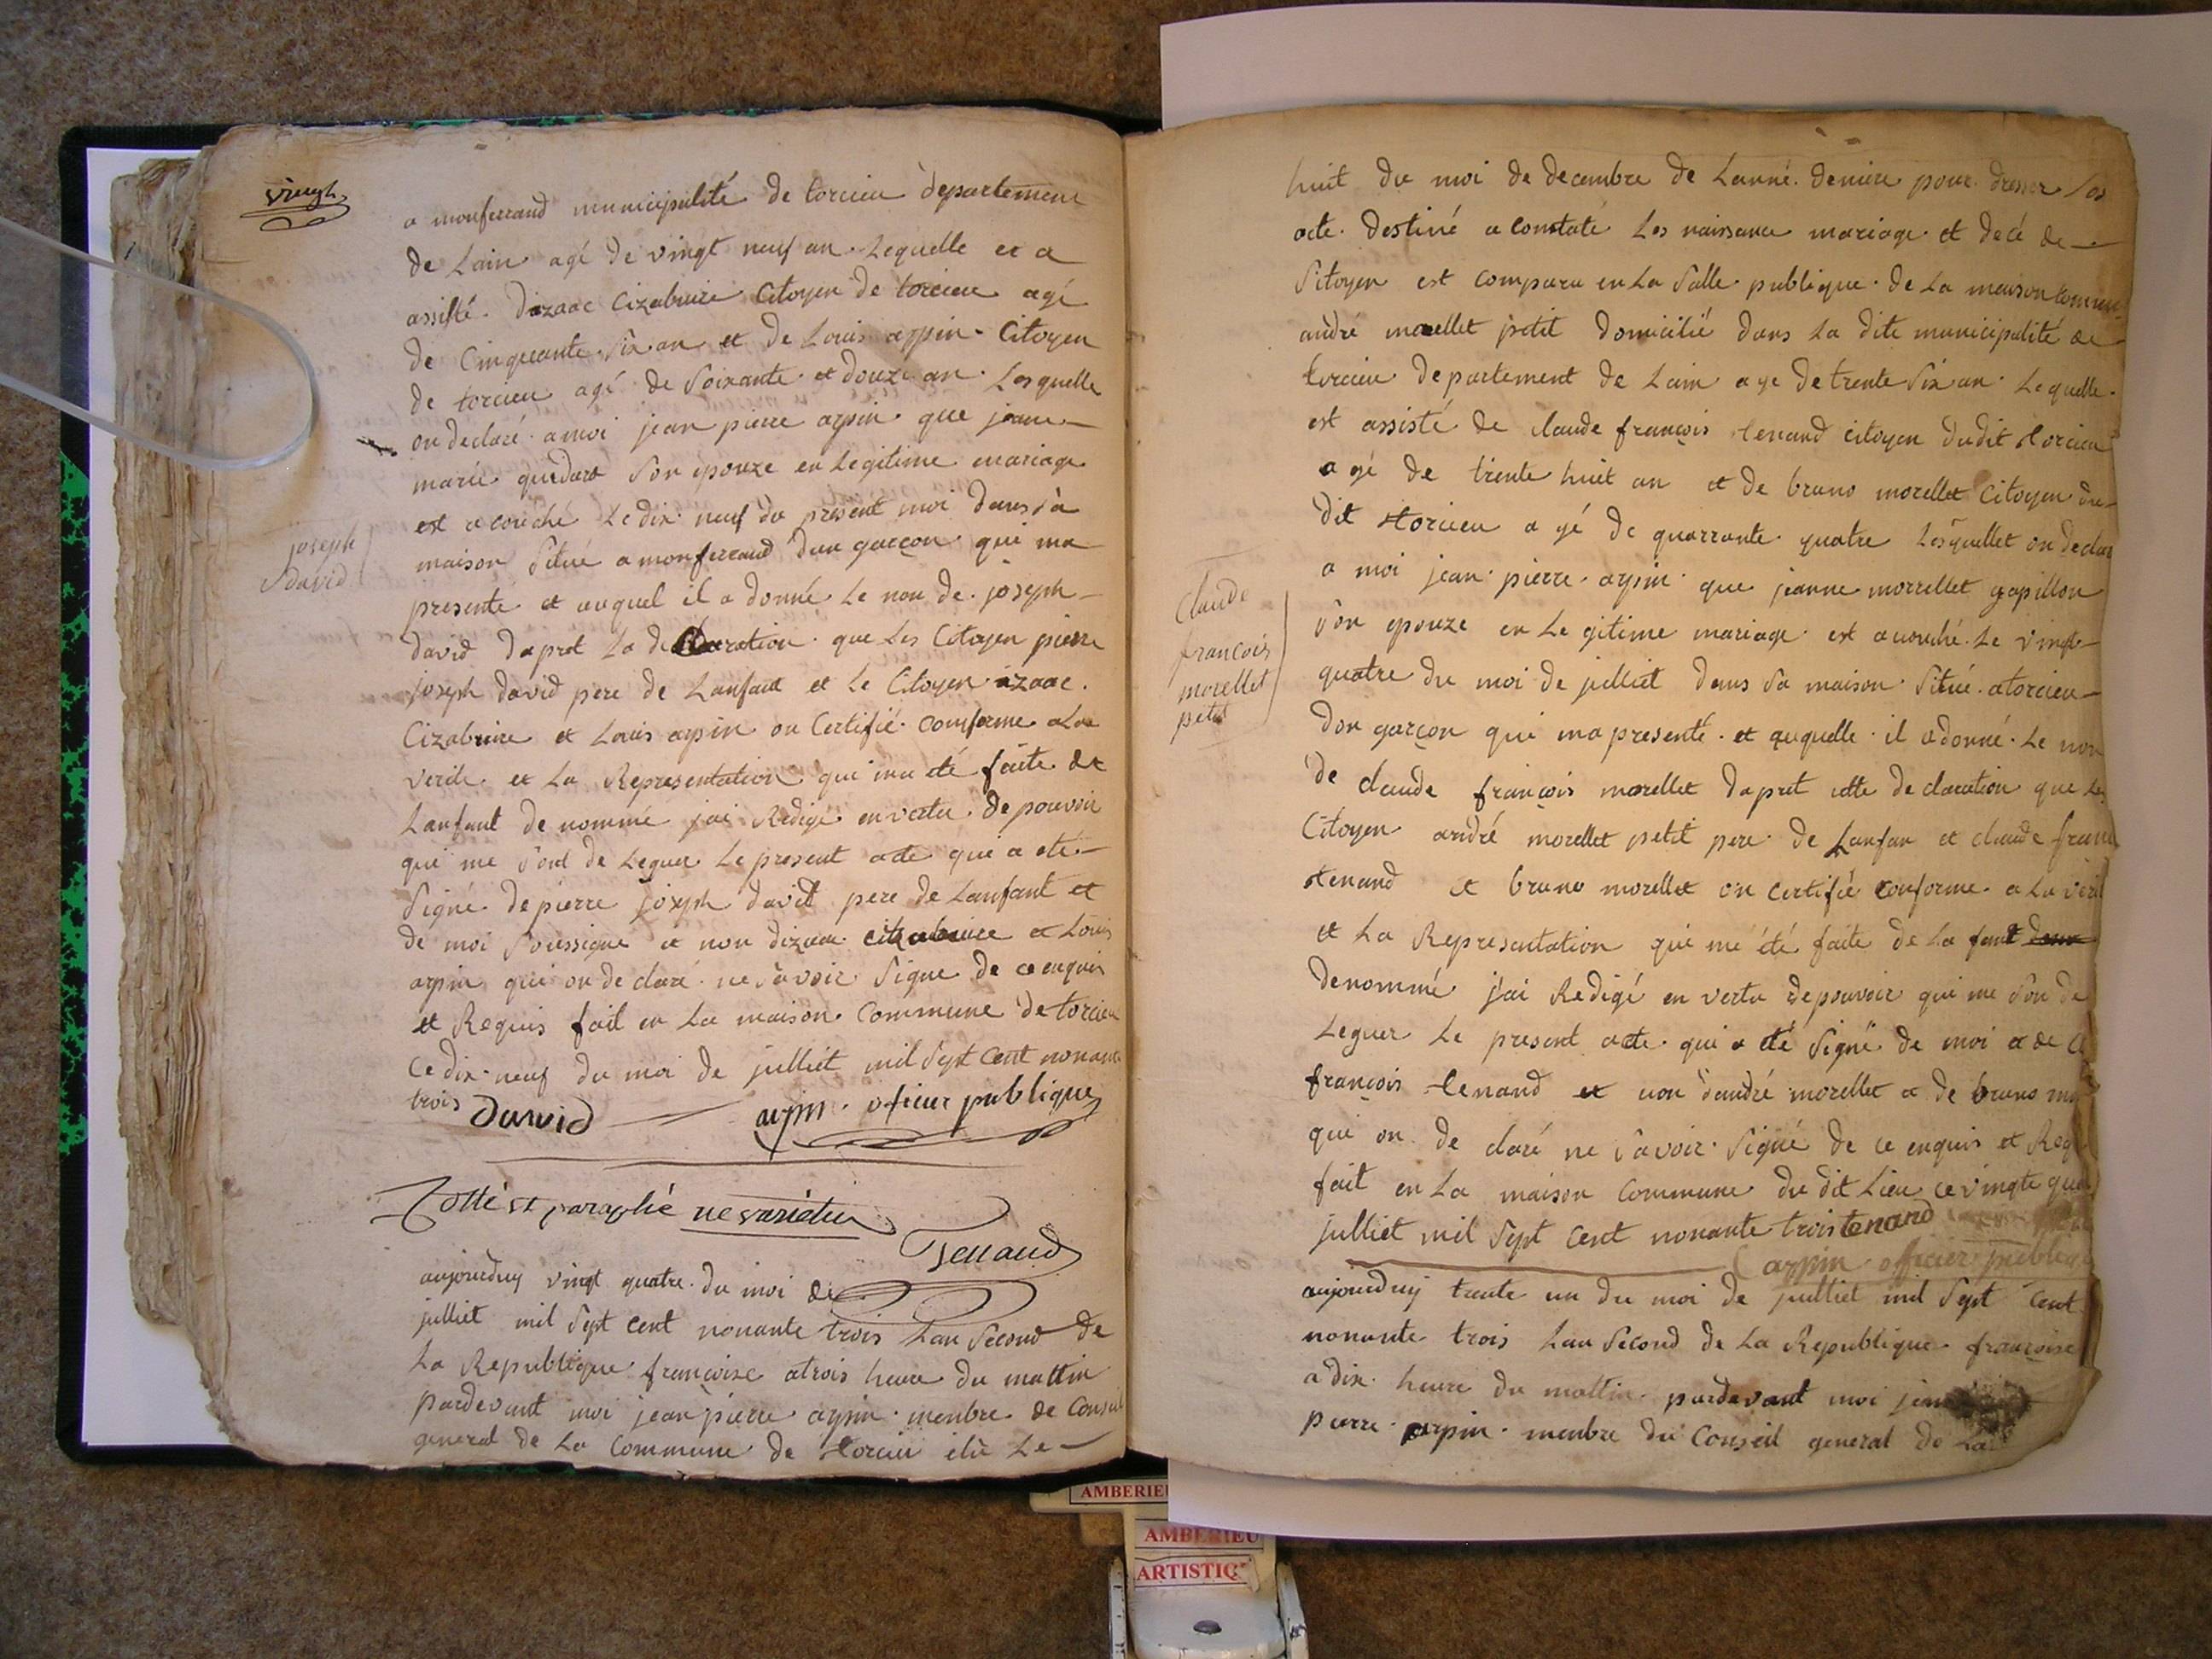 vingt
a monferrand municipalité de torcieu departement
de Lain agé de vingt neuf an Lequelle et a
assisté dizaac Cizabuire Citoyen de torcieu agé
de Cinquante Six an et de Louis arpin Citoyen
de torcieu agé de Soixante et douze an Les quelle
on declaré a moi jean pierre arpin que jeanne
marie quidard Son epouze en Legitime mariage
est acouché Le dix neuf du present moi dans sa
maison Situé a monferrand dun garçon qui ma
joseph
david
presenté et auquel il a donné Le non de joseph
david dapret La declaration que Les Citoyen pierre
joseph david pere de Lanfant et Le Citoyen izaac
Cizabuire et Louis arpin on Certifié Conforme a La
verite et La Representation qui ma eté faite de
Lanfant de nommé jai Redigé en vertu de pouvoir
qui me Sont de Leguer Le present acte qui a eté
Signé de pierre joseph david pere de Lanfant et
de moi Soussigné et non dizaac Cizabuire et Louis
arpin qui on de claré ne Savoir Signe de ce enquis
et Requis fait en La maison Commune de torcieu
Ce dix neuf du moi de julliet mil Sept Cent nonante
trois David arpin oficier publique
Cotté et paraphé ne varietur
Tenand
aujourduy vingt quatre du moi de
julliet mil Sept cent nonante trois Lan Second de
La Republique françoise a trois heure du mattin
pardevant moi jean pierre arpin menbre de Conseil
general de La Commune de torcieu élu Le
huit du moi de decembre de Lanné derniere pour dresser Les
acte destiné a Constaté Les naissance mariage et decé de
Sitoyen est comparu en La Salle publique de La maison Commune
andré morellet petit domicilié dans La dite municipalité de
torcieu departement de Lain a ge de trente Six an Le quelle
est assisté de claude françois tenand citoyen dudit torcieu
a gé de trente huit an et de bruno morellet Citoyen du
dit torcieu a gé de quarrante quatre Lesquellet on declar
a moi jean pierre arpin que jeanne morrellet papillon
Claude
françois
morellet
petit
son epouze en Le gitime mariage est acouché Le vingt
quatre du moi de julliet dans Sa maison Situé a torcieu
don garçon qui ma presenté et auquelle il a donné Le non
de claude françois morellet dapret cette de claration que Les
Citoyen andré morellet petit pere de Lanfan et claude franc
tenand et bruno morellet on certifié conforme a La verit
et La Representation qui me été faite de La fant
denommé j'ai Redigé en vertu de pouvoir qui me Son de
Leguer Le present acte qui a été Signé de moi et de Cl
françois tenand et non dandré morellet et de bruno mo
qui on de claré ne Savoir Signé de ce enquis et Requ
fait en La maison Commune du dit Lieu ce vingte qua
julliet mil Sept Cent nonante trois tenand
arpin officier publique
aujourduy trente un du moi de julliet mil Sept Cent
nonante trois Lan Second de La Republique françoise
a dix heure du mattin pardevant moi jean
pierre arpin menbre du Conseil general de La
AMBERIEU
AMBERIEU
ARTISTIQ